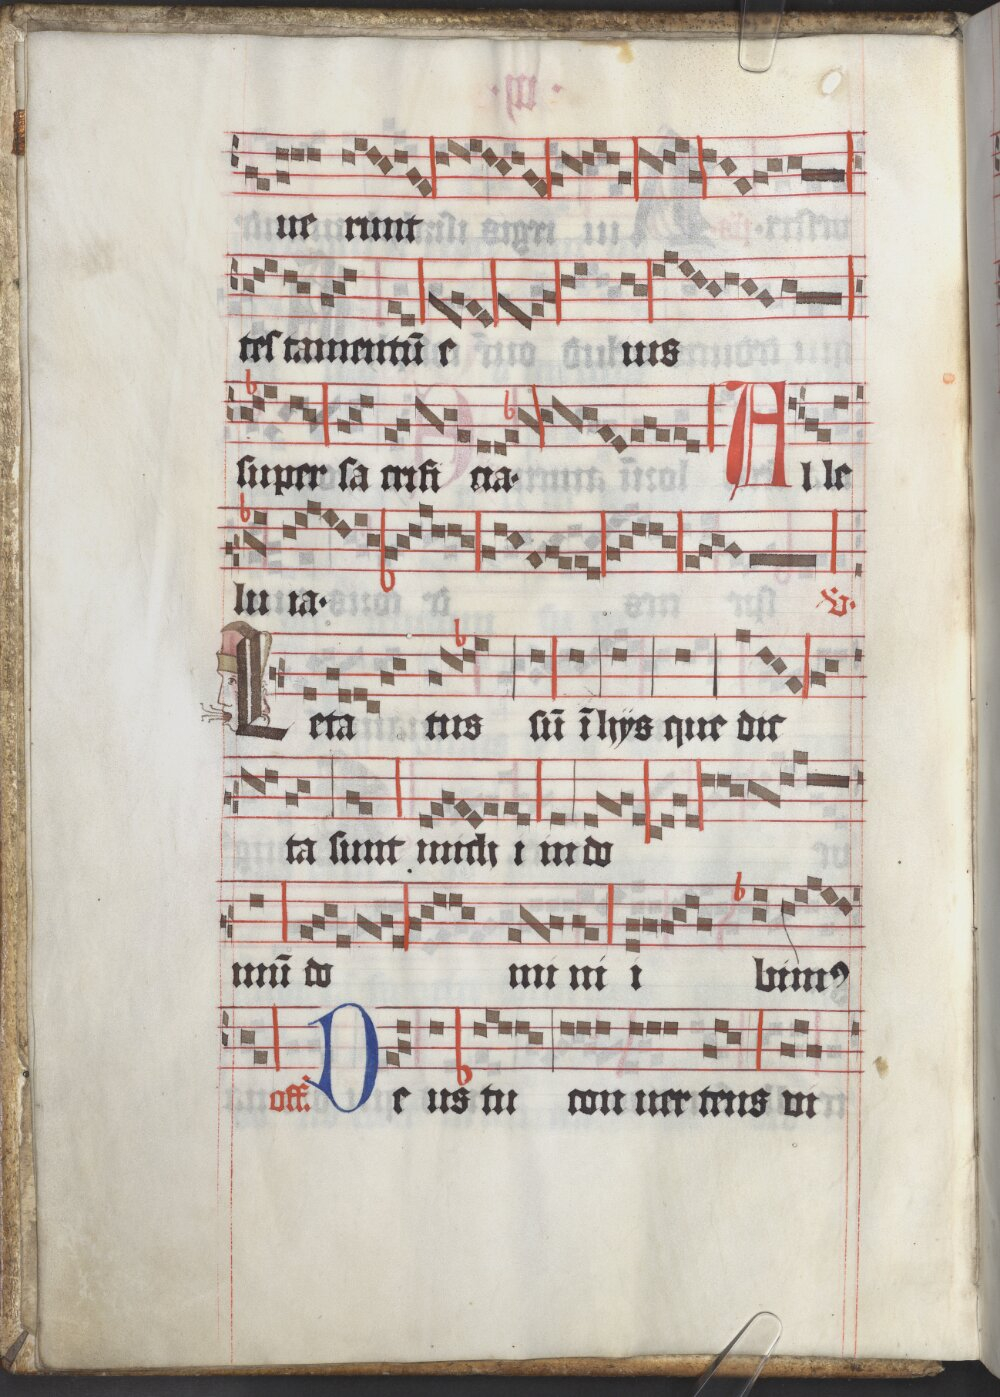 ue runt
tes tamentū e ius
super sa crifi cia· A l le
lu ia· V̓.
L eta tus sū ī hijs que dic
ta sunt mich i in do
mū do mi ni i bimꝰ
off. D e us tu con uer tens vi